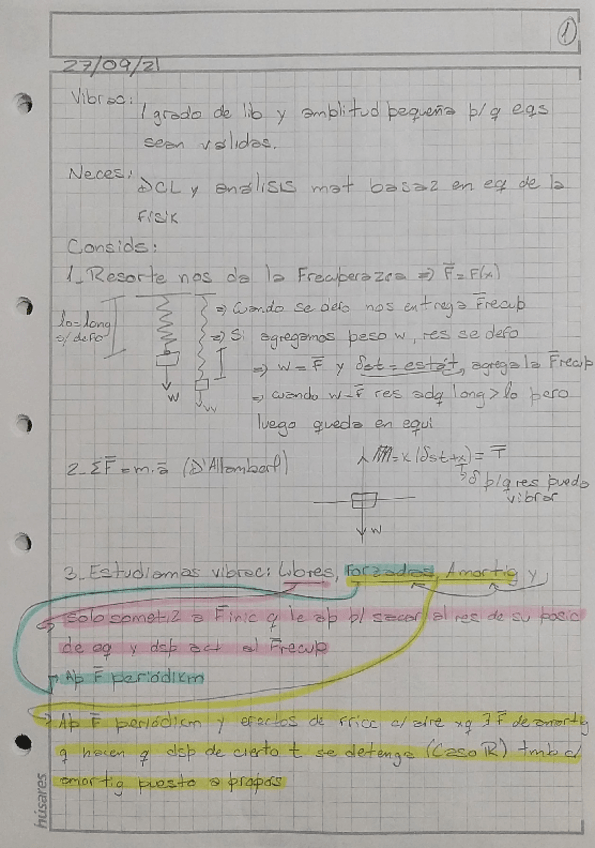 1
27/09/21
Vibrac:
1 grado de lib y amplitud pequeña p/q eqs
sean validas.
Neces:
DCL y análisis mat basaz en eq de la
Fisik
Consids:
1_ Resorte nos da la Frecuperazca => F̅ = F(x)
lo=long
s/defo
=> Cuando se defo nos entrega F̅recup
=> Si agregamos peso w, res se defo
=> w = F̅ y δst = estát, agrega la F̅recup
=> cuando w=F̅ res adq long > lo pero
luego queda en equi
W
W
2_ ΣF̅ = m.a̅ (D'Allambert)
(δst+x) = T̅
δ p/q res pueda
vibrar
W
3_ Estudiamos vibrac: Libres, Forzadas, Amortig y
solo sometiz a F̅inic q le ap p/ sacar al res de su posic
de eq y dsp act el F̅recup
Ap F̅ periódikm
Ap F̅ periódicm y efectos de fricc c/ aire xq ∃ F̅ de amortig
q hacen q dsp de cierto t se detenga (Caso R) tmb c/
amortig puesto a propós
húsares